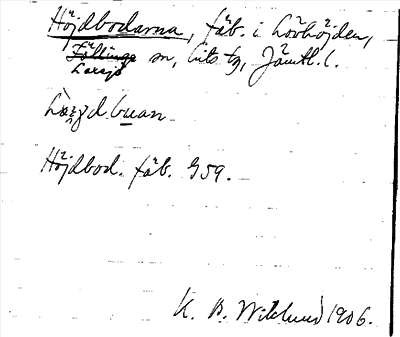 Höjdbodarna, fäb. i Lövhöjden,
Föllinge sn, Lits tg, Jämtl. l.
Laxsjö
Höjdbod. fäb. G59.
K. B. Wiklund 1906.